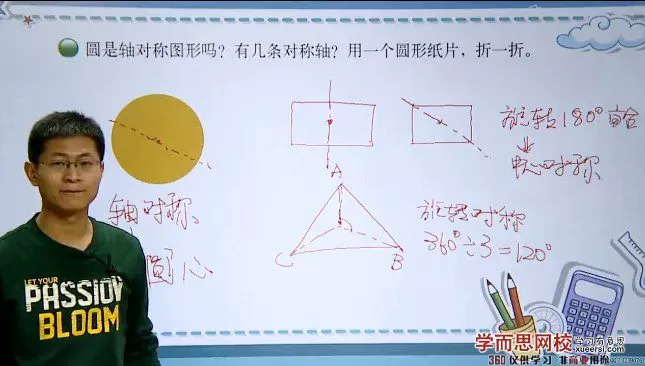 圆是轴对称图形吗？有几条对称轴？用一个圆形纸片，折一折。
旋转180°重合
中心对称
A
轴对称
旋转对称
360°÷3=120°
C
B
圆心
LET YOUR
PASSION
BLOOM
学而思网校
xueersi.com
360 仅供学习 非商业用途